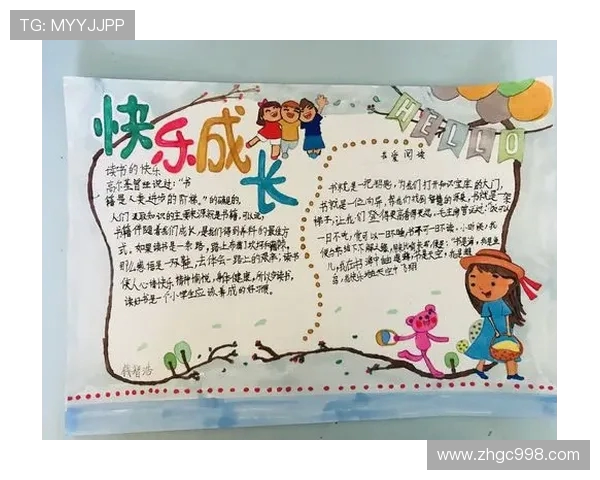 TG: MYYJJPP
快乐成长
HELLO
读书的快乐
高尔基曾经说过：“书
籍是人类进步的阶梯。”的确是的，
人们汲取知识的主要来源就是书籍，可以说，
书籍伴随着我们成长，是我们得到养料的最佳方
式。如果读书是一条路，路上布满了坎坷和荆棘，
那么想错是一双鞋，去体会一路上的艰辛，读书
使人心情快乐，精神愉悦，身体健康，所以多读书，
读好书是一个小学生应该养成的好习惯。
书爱阅读
书就是一把钥匙，为我们打开知识宝库的大门，
书就是一位向导，带我们找到智慧的源泉，书就是一架
梯子，让我们登得更高看得更远，毛主席曾说过：“饭可以
一日不吃，觉可以一日不睡，书不可一日不读
钱智浩
www.zhgc998.com